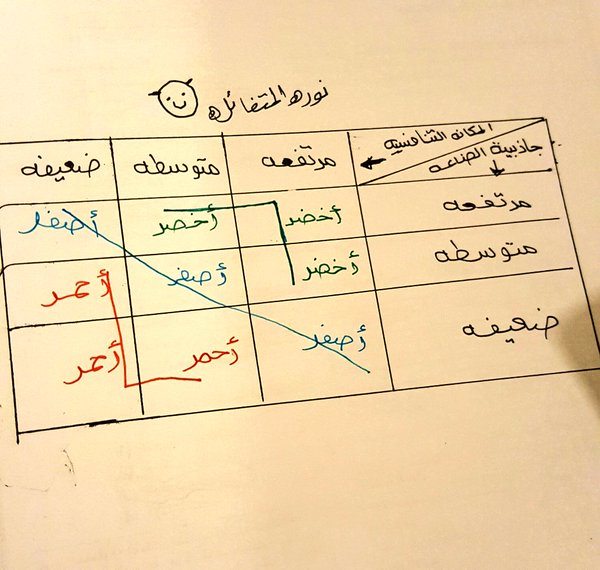 نوره المتفائله
المكانه التنافسيه
جاذبية الصناعه
مرتفعه متوسطه ضعيفه
مرتفعه أخضر أخضر أصفر
متوسطه أخضر أصفر أحمر
ضعيفه أصفر أحمر أحمر